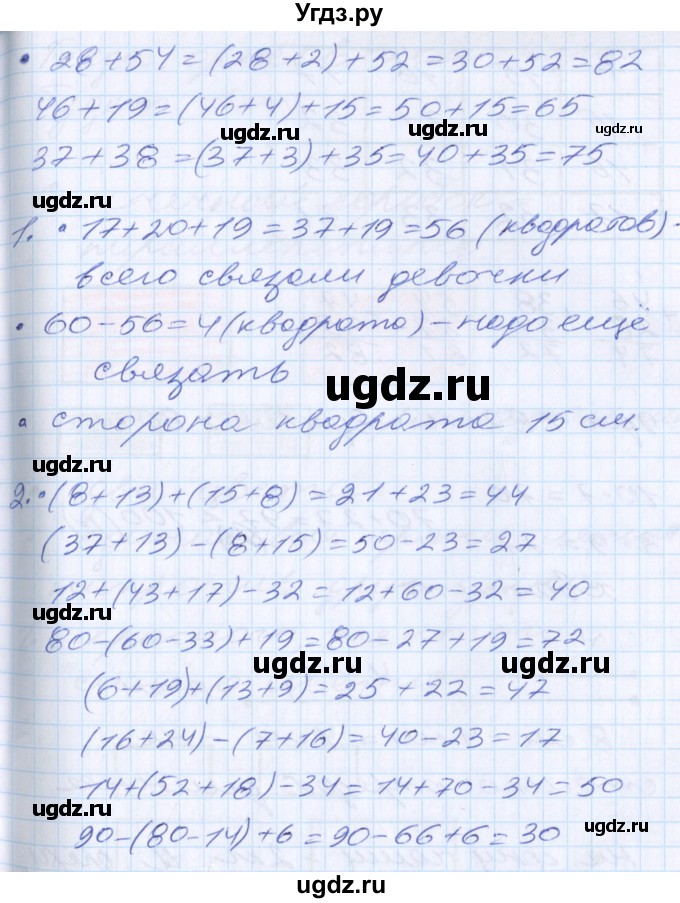 Угдз.ру
• 28+54=(28+2)+52=30+52=82
46+19=(46+4)+15=50+15=65
ugdz.ru ugdz.ru
37+38=(37+3)+35=40+35=75
ugdz.ru
1. • 17+20+19=37+19=56 (квадратов)-
всего связали девочки
ugdz.ru ugdz.ru
• 60-56=4(квадрата)-надо ещё
связать
ugdz.ru
• сторона квадрата 15 см.
ugdz.ru
2. •(8+13)+(15+8)=21+23=44
ugdz.ru
(37+13)-(8+15)=50-23=27
12+(43+17)-32=12+60-32=40
ugdz.ru
80-(60-33)+19=80-27+19=72
ugdz.ru ugdz.ru
(6+19)+(13+9)=25+22=47
(16+24)-(7+16)=40-23=17
14+(52+18)-34=14+70-34=50
ugdz.ru
90-(80-14)+6=90-66+6=30
ugdz.ru
ugdz.ru